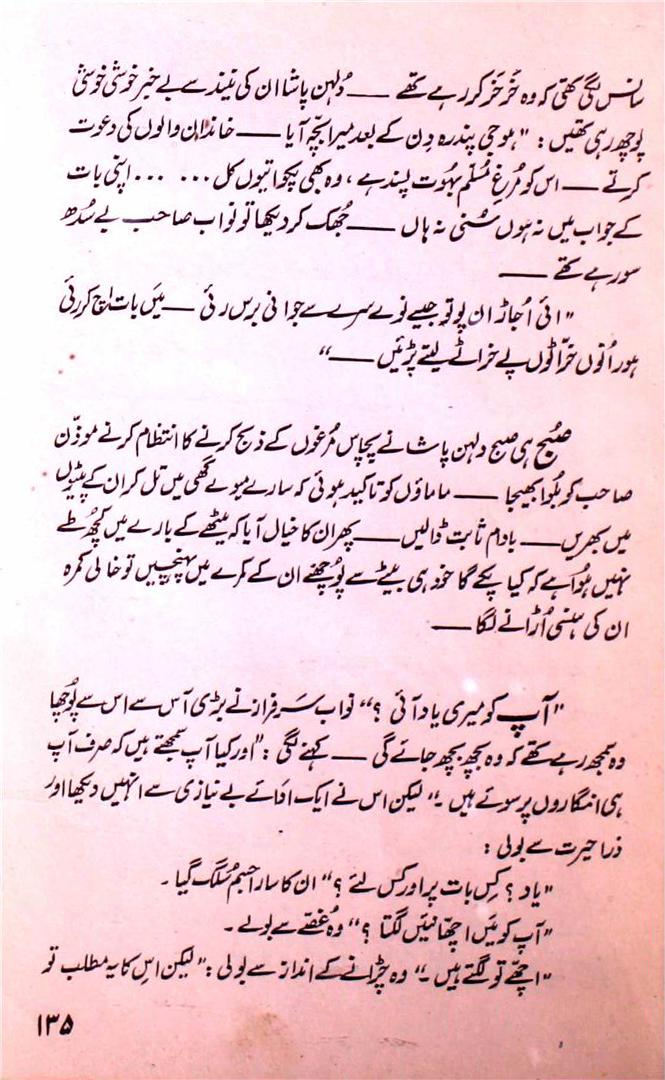 سانس لگی تھی کہ وہ خَرخَر کر رہے تھے —— دُلہن پاشا ان کی نیند سے بے خبر خوشی خوشی
پوچھ رہی تھیں : "ہو جی پندرہ دِن کے بعد میرا بچّہ آیا —— خاندان والوں کی دعوت
کرتے —— اس کو مُرغِ مُسلّم بہُوت پسند ہے ، وہ بھی پکوا تیوں کل ... ... اپنی بات
کے جواب میں نہ ہوں سُنی نہ ہاں —— جُھک کر دیکھا تو نواب صاحب بے سُدھ
سو رہے تھے ——
"ائی اُجاڑ ان پو تو جیسے نوے سرے سے جوانی برس رئی —— میَں بات اچ کر رئی
ہور اُنوں خرّاٹوں پے خراٹے لیتے پڑئیں ——"
صُبح ہی صبح دلہن پاشا نے پچاس مُرغوں کے ذبح کرنے کا انتظام کرنے موذّن
صاحب کو بُلوا بھیجا —— ماماؤں کو تاکید ہوئی کہ سارے میوے گھی میں تل کر ان کے پیٹوں
میں بھریں —— بادام ثابت ڈالیں —— پھر ان کا خیال آیا کہ میٹھے کے بارے میں کچھ طے
نہیں ہُوا ہے کہ کیا پکے گا خود ہی بیٹے سے پوُچھنے ان کے کمرے میں پہنچیں تو خالی کمرہ
ان کی ہنسی اُڑانے لگا ——
"آپ کو میری یاد آئی ؟" نواب سَرفراز نے بڑی آس سے اس سے پوُچھا
وہ سمجھ رہے تھے کہ وہ بچھ بچھ جائے گی —— کہنے لگی : "اور کیا آپ سمجھتے ہیں کہ صرف آپ
ہی انگاروں پر سوئے ہیں ۔" لیکن اس نے ایک ادائے بے نیازی سے انہیں دیکھا اور
ذرا حیرت سے بولی :
"یاد ؟ کِس بات پر اور کس لئے ؟" ان کا سارا جسم سُلگ گیا ۔
"آپ کو میَں اچھّا نئیں لگتا ؟" وہ غُصّے سے بولے ۔
"اچھّے تو لگتے ہیں ۔" وہ چڑانے کے انداز سے بولی : "لیکن اس کا یہ مطلب تو
۱۳۵